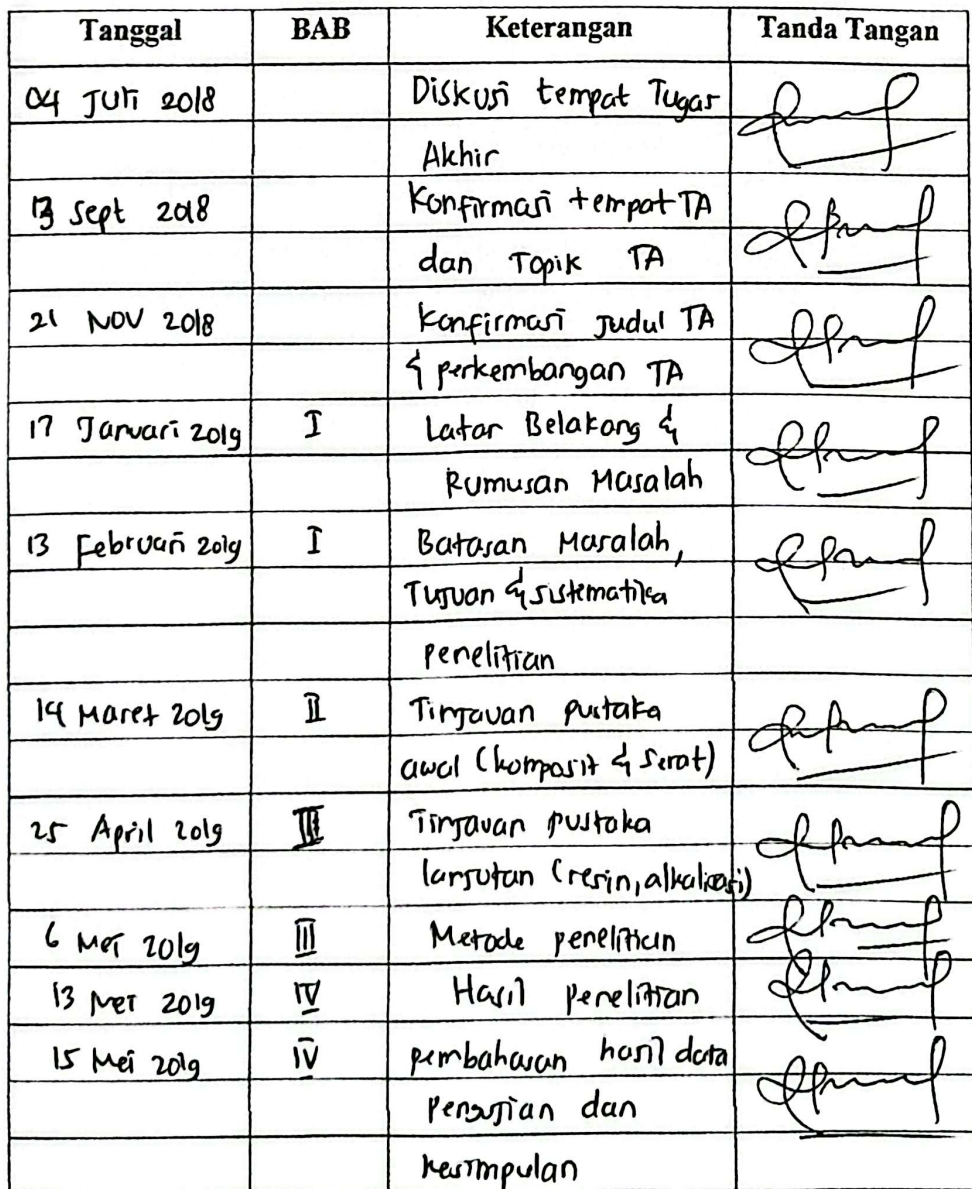 Tanggal BAB Keterangan Tanda Tangan
04 Juli 2018 Diskusi tempat Tugas
Akhir
13 Sept 2018 Konfirmasi tempat TA
dan Topik TA
21 NOV 2018 Konfirmasi Judul TA
& perkembangan TA
17 Januari 2019 I Latar Belakang &
Rumusan Masalah
13 Februari 2019 I Batasan Masalah,
Tujuan & sistematika
penelitian
14 Maret 2019 II Tinjauan pustaka
awal (komposit & Serat)
25 April 2019 Tinjauan pustaka
lanjutan (resin, alkalisasi)
6 Mei 2019 III Metode penelitian
13 Mei 2019 IV Hasil penelitian
15 Mei 2019 IV pembahasan hasil data
pengujian dan
kesimpulan